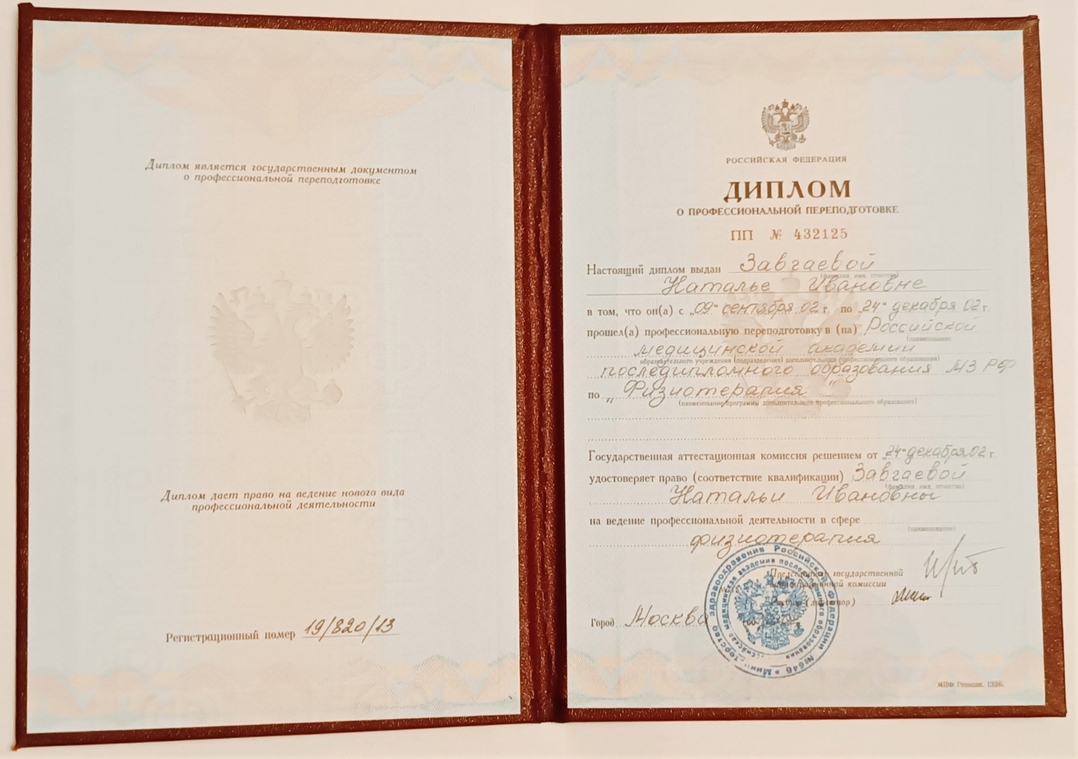 Диплом является государственным документом
о профессиональной переподготовке
Диплом дает право на ведение нового вида
профессиональной деятельности
Регистрационный номер 19/820/13
РОССИЙСКАЯ ФЕДЕРАЦИЯ
ДИПЛОМ
О ПРОФЕССИОНАЛЬНОЙ ПЕРЕПОДГОТОВКЕ
ПП № 432125
Настоящий диплом выдан Завгаевой
(фамилия, имя, отчество)
Наталье Ивановне
в том, что он(а) с „09“ сентября 02 г. по „24“ декабря 02 г.
прошел(а) профессиональную переподготовку в (на) Российской
(наименование
медицинской академии
образовательного учреждения (подразделения) дополнительного профессионального образования)
последипломного образования МЗ РФ
по „Физиотерапия“
(наименование программы дополнительного профессионального образования)
Государственная аттестационная комиссия решением от „24“ декабря 02 г.
удостоверяет право (соответствие квалификации) Завгаевой
(фамилия, имя, отчество)
Натальи Ивановны
на ведение профессиональной деятельности в сфере
(наименование)
физиотерапия
Председатель государственной
аттестационной комиссии
Ректор (директор)
Город Москва